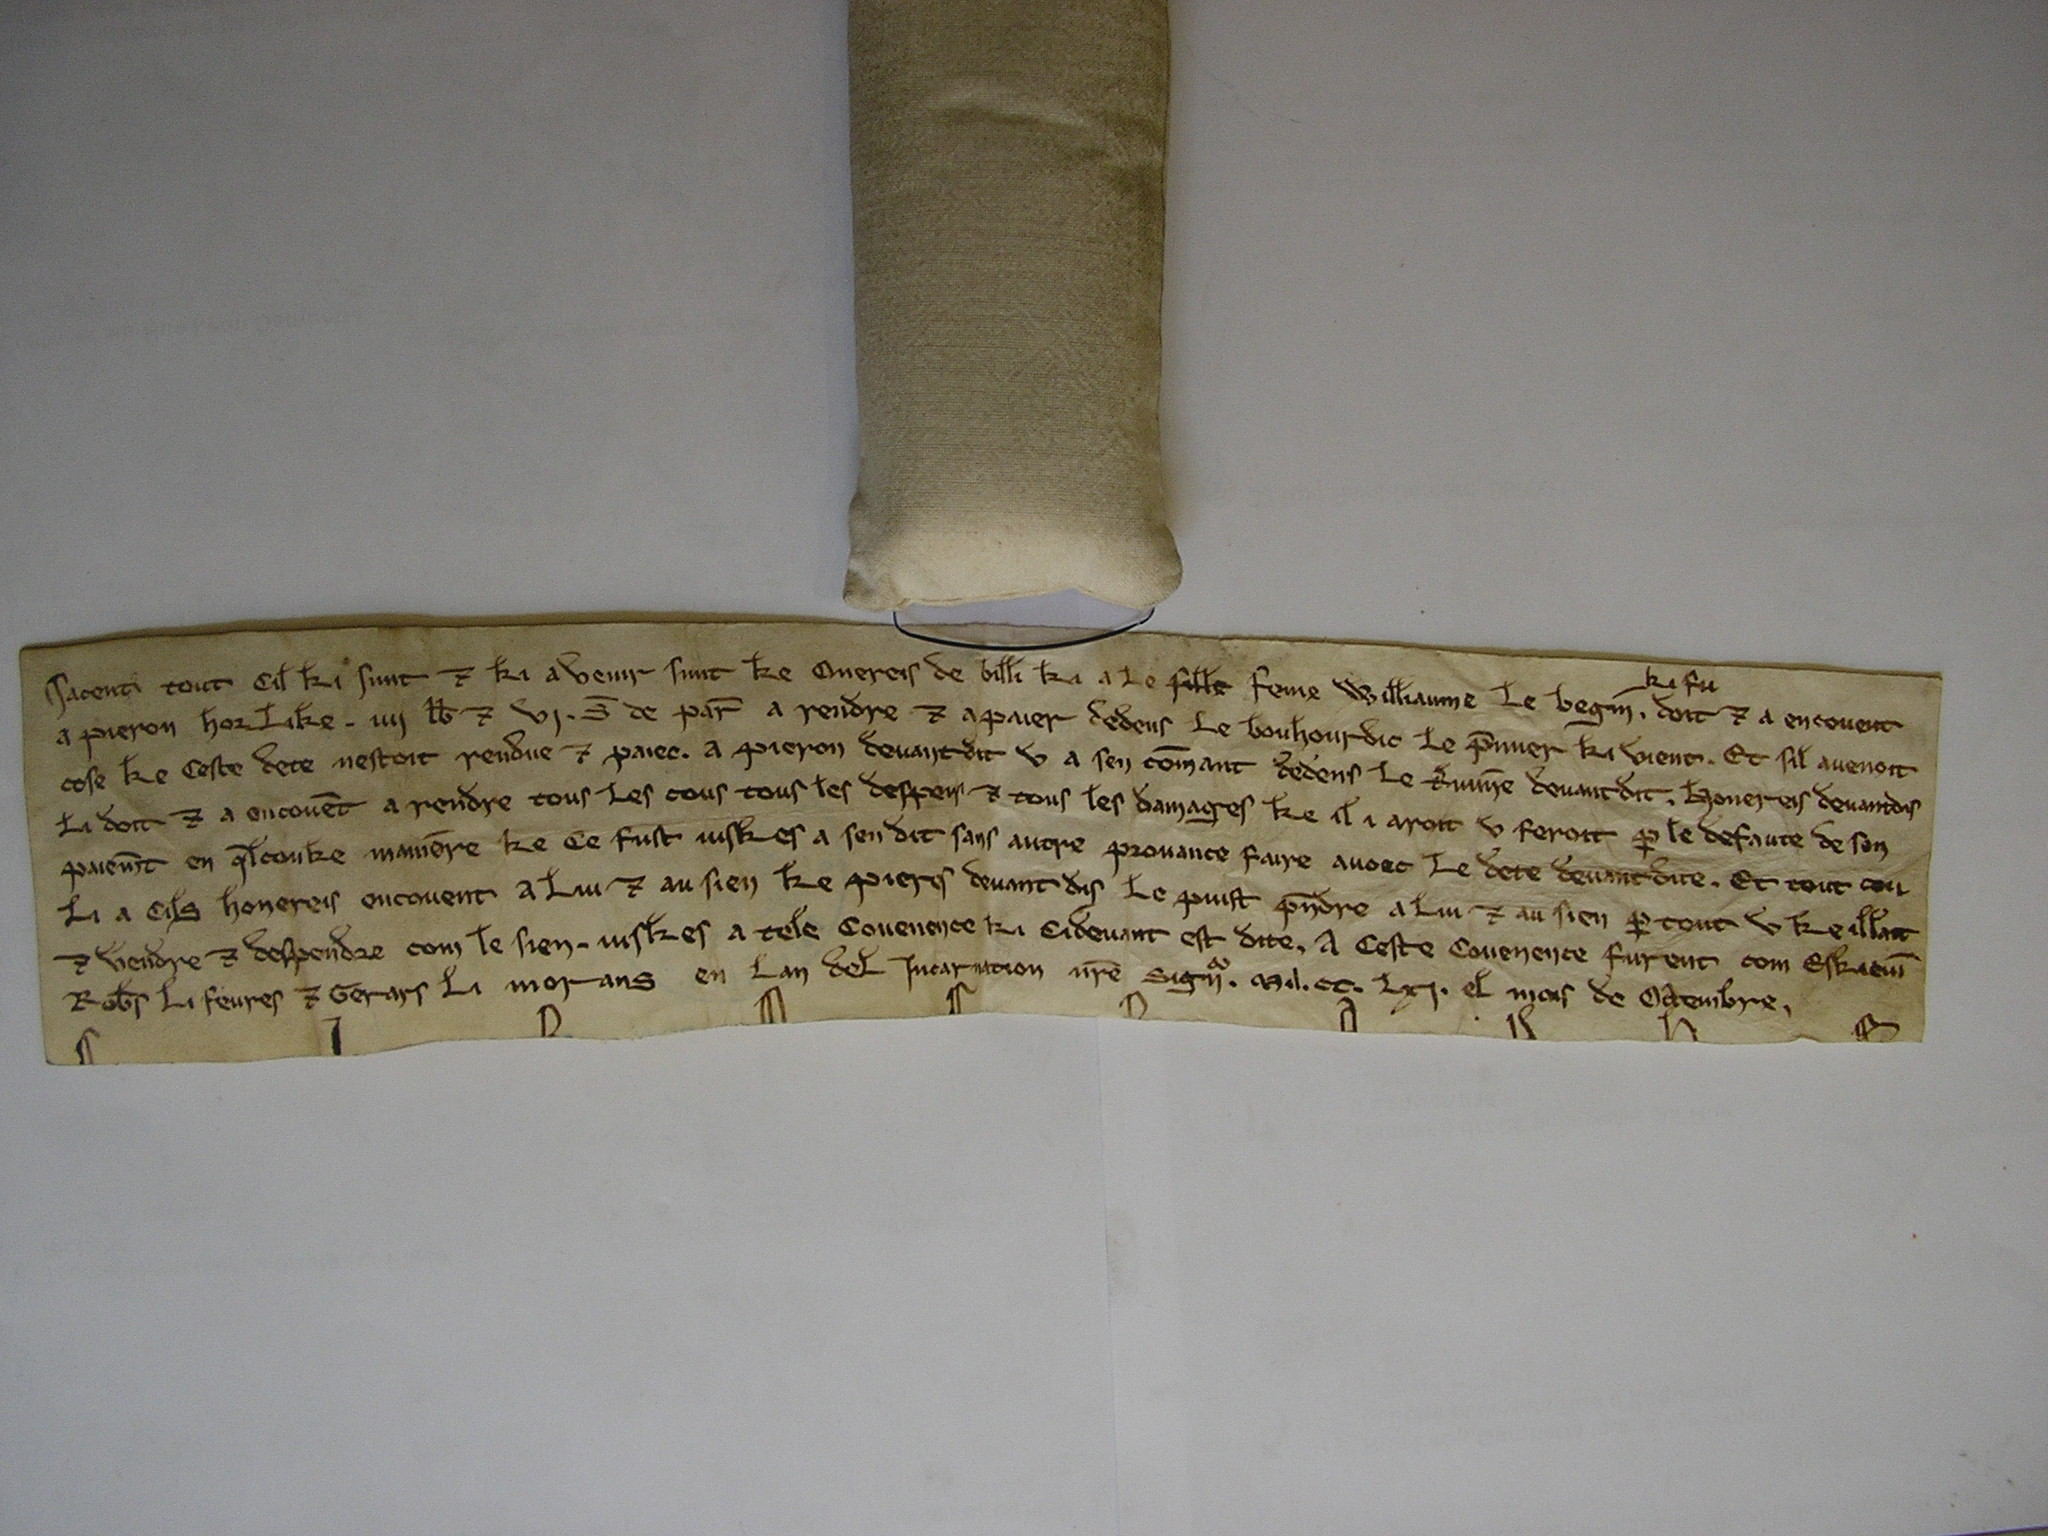 Sacent tout Cil ki sunt ⁊ ki avenir sunt ke Onereis de billi ki a le fille feme Williaume le begin. ki fu doit ⁊ a encovent
a pieron horLike. iiij lb̄ ⁊ vj. s̄ de par̄ a rendre ⁊ a paier dedens Le bouhourdic Le p̄mier ki vient. Et sil avenoit
cose ke Ceste dete nestoit rendue ⁊ paiee. a pieron devantdit v a sen com̄ant dedens Le devant dit. honereis devantdis
Li doit ⁊ a encovēt a rendre tous Les cous tous les despens ⁊ tous les damages ke il i aroit v feroit p̱ le defaute de son
paiem̄t en q̄lconke maniere ke Ce fust iuskes a sen dit sans autre provance faire avoec Le dete devant dite. Et tout cou
Li a Cils honereis encovent a Lui ⁊ au sien ke pieres devant dis Le puist p̄ndre a Lui ⁊ au sien p̱ tout v ke il lait
⁊ vendre ⁊ despendre com le sien. iuskes a tele Covenence ki Cidevant est dite. A Ceste Covenence furent com Eskievin
Rob̄s Li fevres ⁊ Gerars Li morans en Lan deL Incarnation nr̄e Sign̄. M. cc. Lxj. el mois de Octembre.